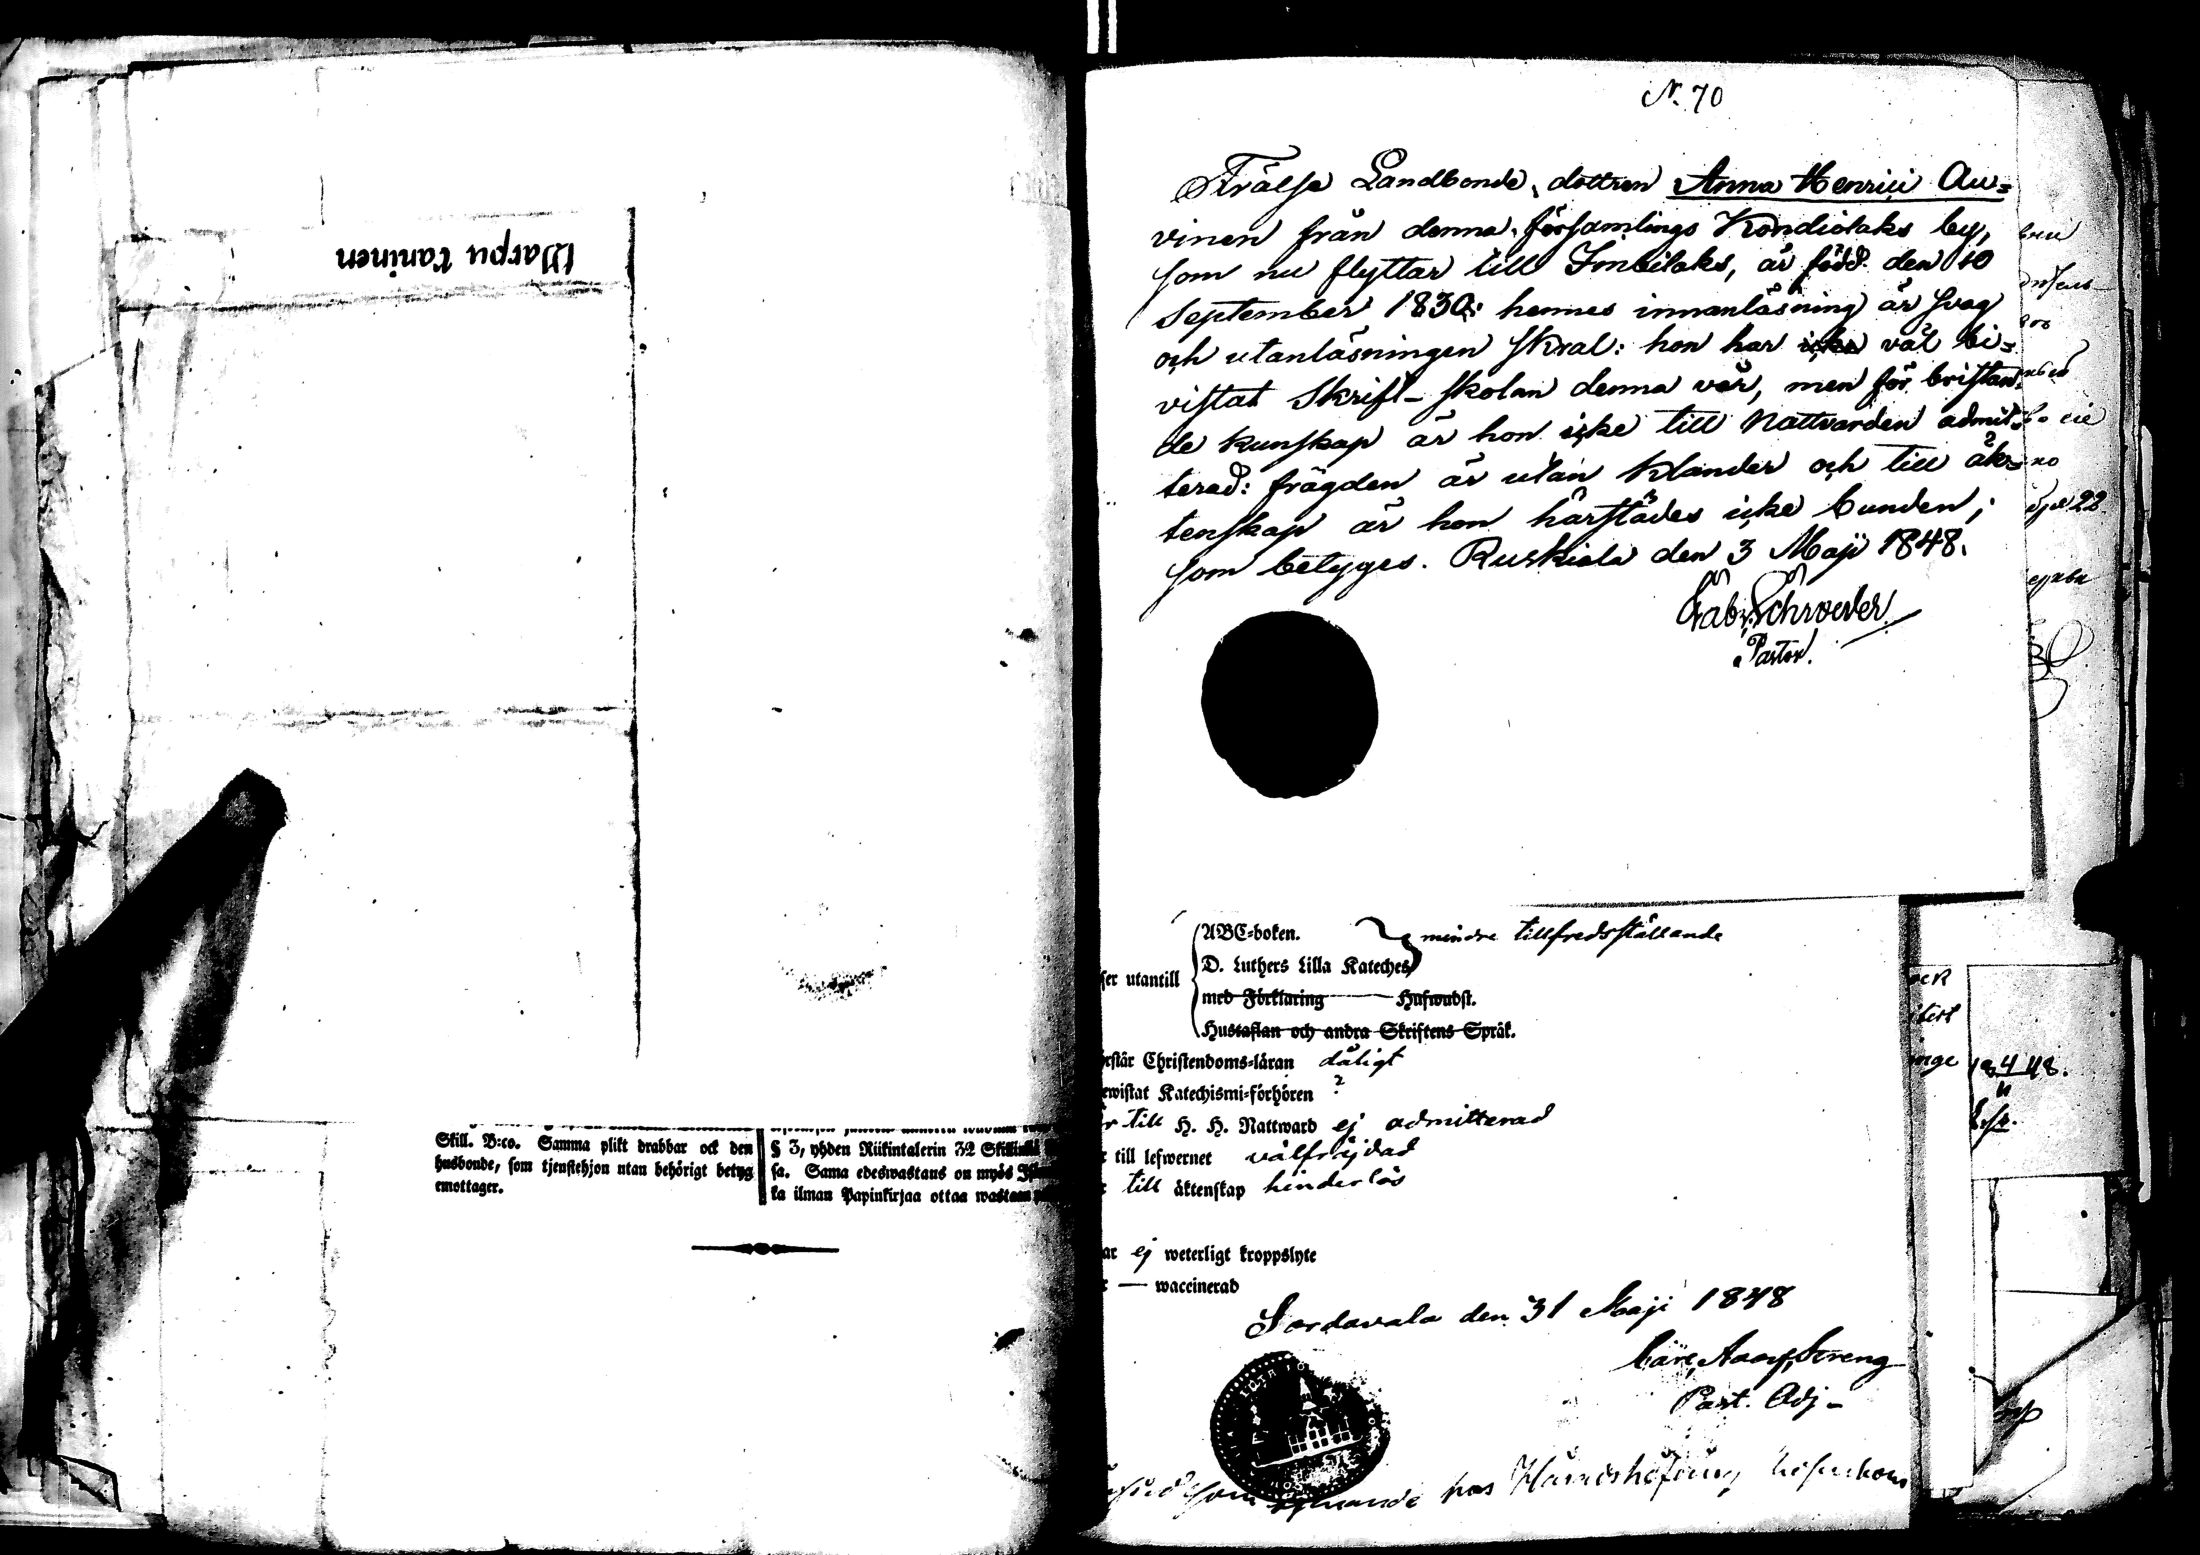 Warpu Taninen
Skill. B:co. Samma plikt drabbar ock den
husbonde, som tjenstehjon utan behörigt betyg
emottager.
§ 3, yhden Riikintalerin 32 Skillinkiä
sa. Sama edeswastaus on myös
ka ilman Papinkirjaa ottaa wastaan
N. 70
Frälse Landbonde dottren Anna Henrici Au=
vinen från denna församlings Kondiolaks by,
som nu flyttar till Imbilaks, är född den 10
September 1830: hennes innanläsning är svag
och utanläsningen skral: hon har väl bi=
vistat Skrift-skolan denna vår, men för bristan=
de kunskap är hon icke till Nattvarden admit=
terad: frägden är utan klander och till äk=
tenskap är hon härstädes icke bunden;
som betyges. Ruskiala den 3 Maji 1848.
Gabr. Schroeder
Pastor.
ABC-boken. mindre tillfredsställande
D. Luthers Lilla Kateches
ser utantill
med Förklaring Hufwudst.
Hustaflan och andra Skriftens Språk.
rstår Christendoms-läran dåligt
ewistat Katechismi-förhören ?
r till H. H. Nattward ej admitterad
till lefwernet välfräjdad
till äktenskap hinderlös
ar ej weterligt kroppslyte
— waccinerad
Sordavala den 31 Maji 1848
Carl Adolf Streng
Past. Adj-
som hos